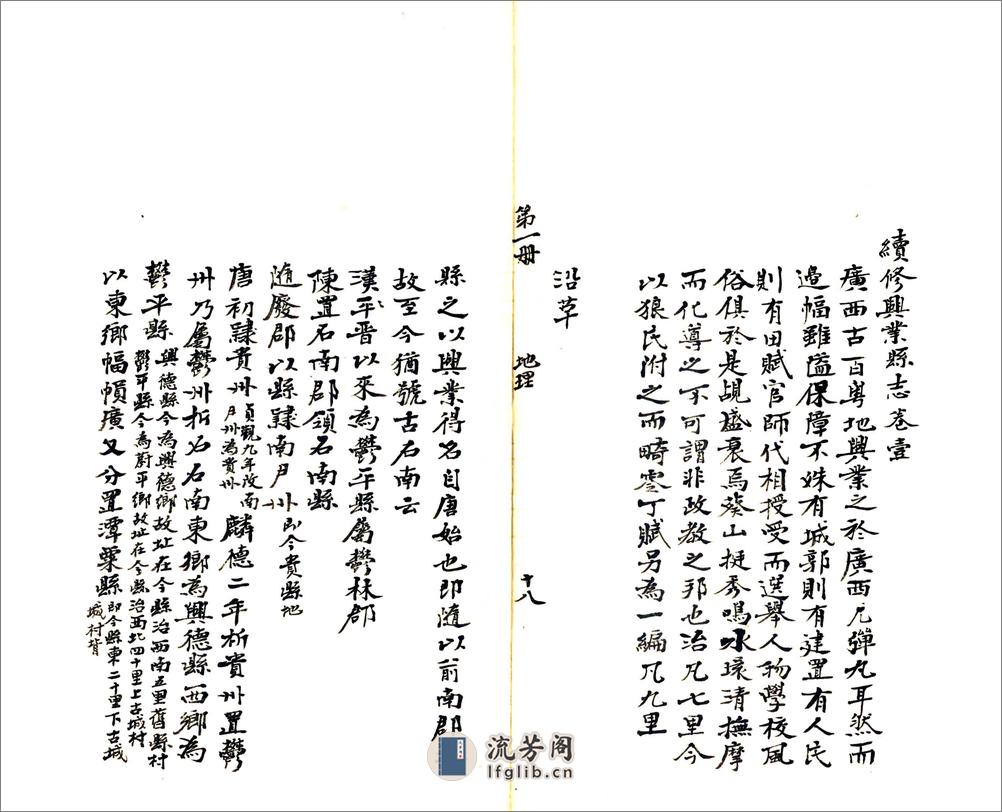 續修興業縣志卷壹
廣西古百粵地興業之於廣西凡彈丸耳然而
邉幅雖隘保障不殊有城郭則有建置有人民
則有田賦官師代相授受而選舉人物學校風
俗俱於是覘盛衰焉葵山挺秀鳴水環清撫摩
而化導之不可謂非政教之邦也治凡七里今
以狼民附之而畸零丁賦另為一編凡九里
沿革
第一册 地理 十八
縣之以興業得名自唐始也即隨以前南郡
故至今猶號古石南云
漢平晋以來為鬱平縣屬鬱林郡
陳置石南郡領石南縣
隨廢郡以縣隸南尹州即今貴縣地
唐初隸貴州貞觀九年改南尹州為貴州麟德二年析貴州置鬱
州乃屬鬱州析石南東鄉為興德縣西鄉為
鬱平縣興德縣今為興德鄉故址在今縣治西南五里舊縣村鬱平縣今為蔚平鄉故址在今縣治西北四十里上古城村
以東鄉幅幀廣又分置潭栗縣即今縣東二十里下古城城村背
流芳阁
lfglib.cn